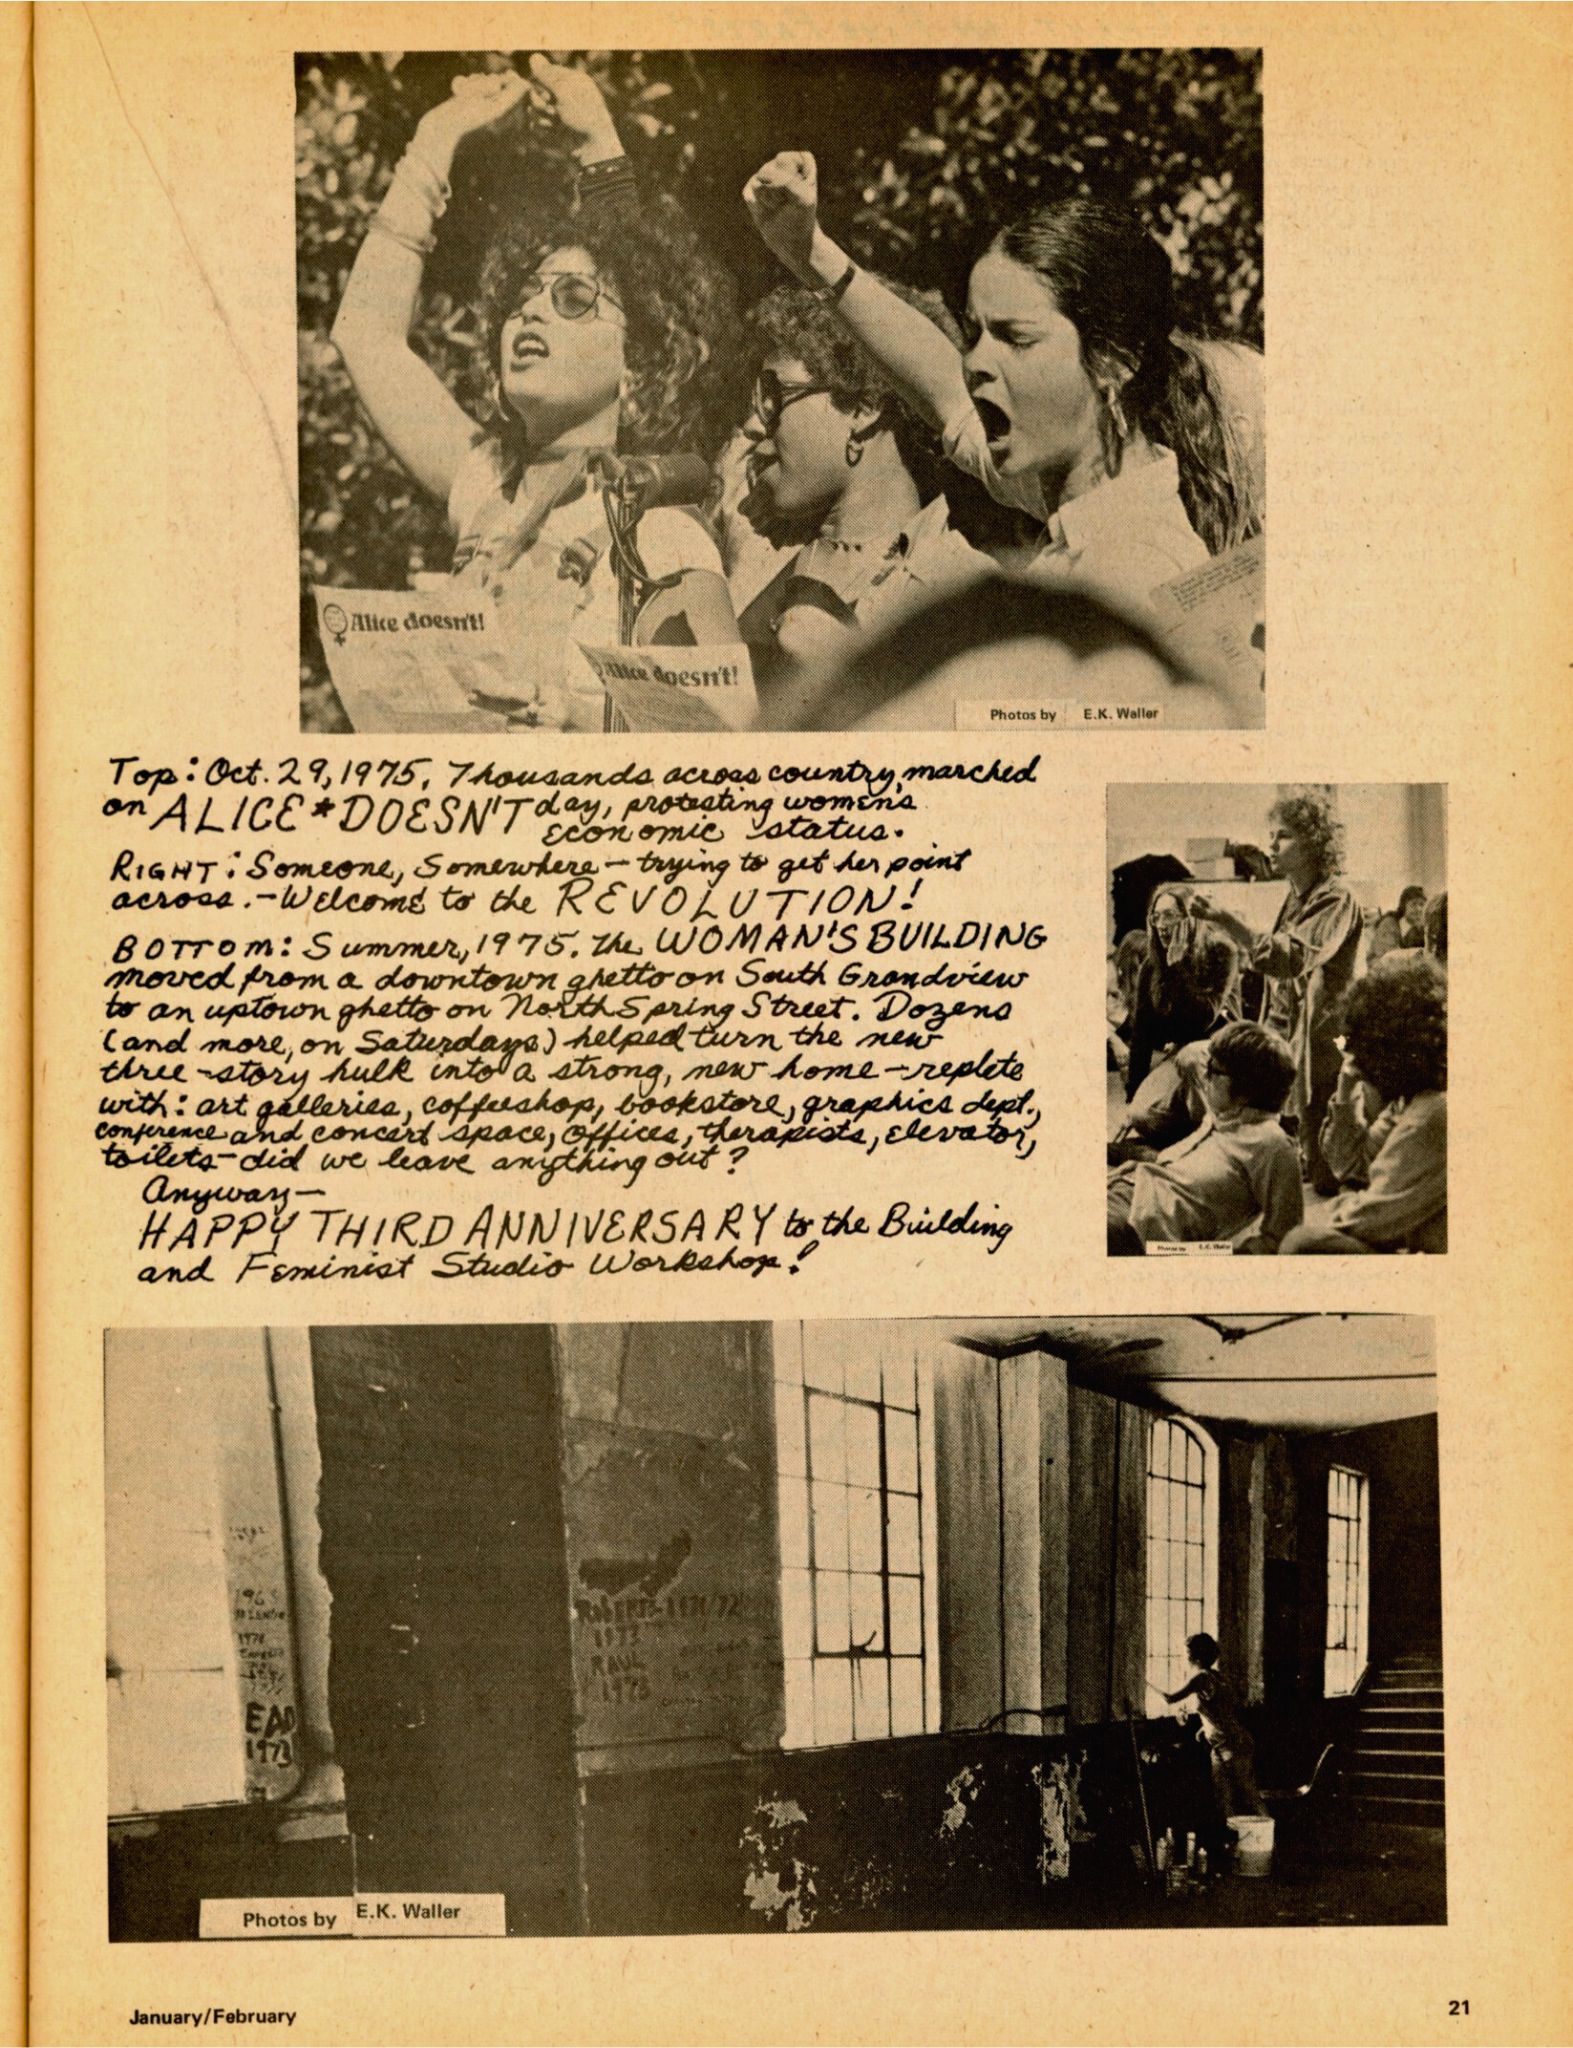 Alice doesn't!
Alice doesn't!
Photos by E.K. Waller
Top: Oct. 29, 1975. Thousands across country marched
on ALICE*DOESN'T day, protesting women's
economic status.
RIGHT: Someone, Somewhere – trying to get her point
across. – Welcome to the REVOLUTION!
BOTTOM: Summer, 1975. The WOMAN'S BUILDING
moved from a downtown ghetto on South Grandview
to an uptown ghetto on North Spring Street. Dozens
(and more, on Saturdays) helped turn the new
three-story hulk into a strong, new home – replete
with: art galleries, coffeeshop, bookstore, graphics dept.,
conference and concert space, offices, therapists, elevator,
toilets – did we leave anything out?
Anyway –
HAPPY THIRD ANNIVERSARY to the Building
and Feminist Studio Workshop!
Photos by E.K. Waller
1973
RAUL
1973
1973
Photos by E.K. Waller
January/February
21